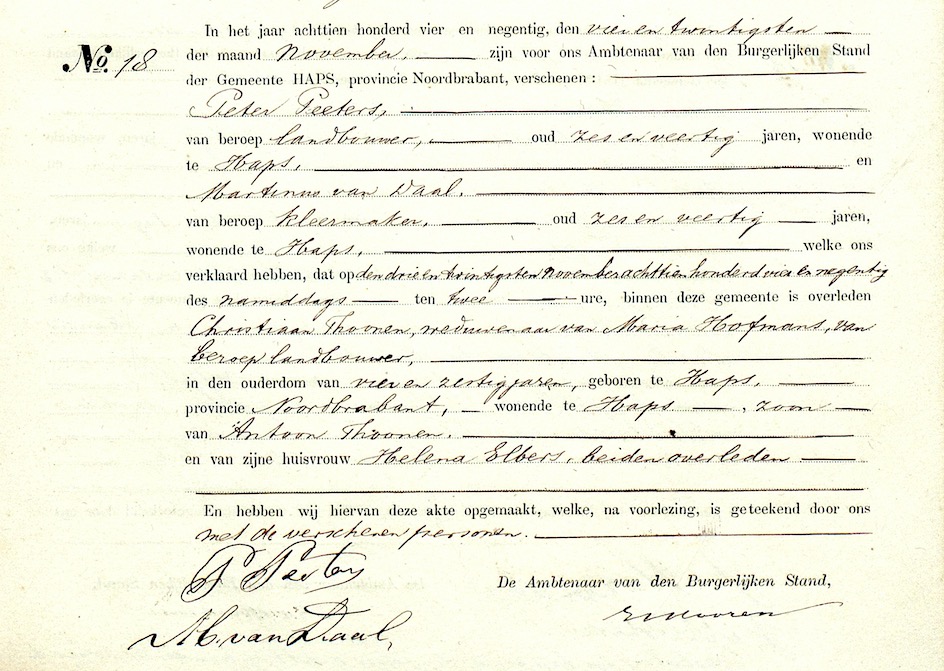 In het jaar achttien honderd vier en negentig, den vier en twintigsten
No. 18
der maand November, zijn voor ons Ambtenaar van den Burgerlijken Stand
der Gemeente HAPS, provincie Noordbrabant, verschenen :
Peter Peeters,
van beroep landbouwer, oud zes en veertig jaren, wonende
te Haps, en
Martinus van Daal,
van beroep kleermaker, oud zes en veertig jaren,
wonende te Haps, welke ons
verklaard hebben, dat op den drie en twintigsten November achttien honderd vier en negentig
des namiddags ten twee ure, binnen deze gemeente is overleden
Christiaan Thoonen, weduwenaar van Maria Hofmans, van
beroep landbouwer,
in den ouderdom van vier en zestig jaren, geboren te Haps,
provincie Noordbrabant, wonende te Haps, zoon
van Antoon Thoonen,
en van zijne huisvrouw Helena Elbers, beiden overleden
En hebben wij hiervan deze akte opgemaakt, welke, na voorlezing, is geteekend door ons
met de verschenen personen.
P Peeters
De Ambtenaar van den Burgerlijken Stand,
M. van Daal,